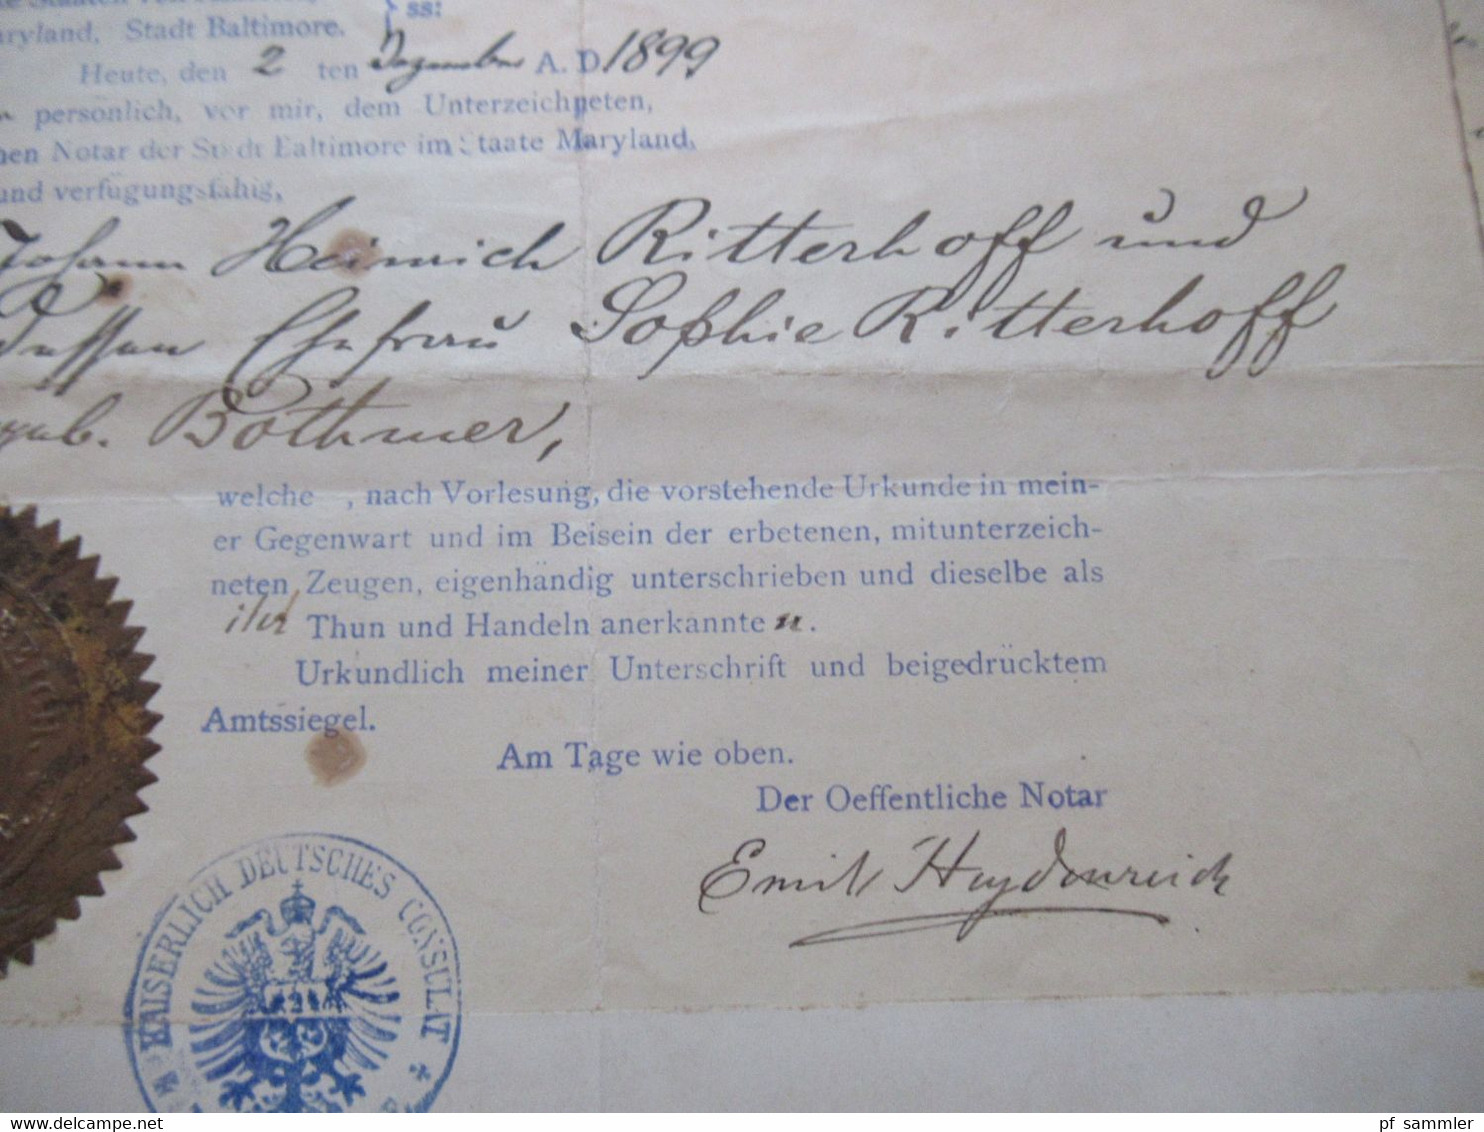 te Staaten von
aryland, Stadt Baltimore. } ss:
Heute, den 2 ten Dezember A. D. 1899
n persönlich, vor mir, dem Unterzeichneten,
hen Notar der Stadt Baltimore im Staate Maryland,
und verfügungsfähig,
Johann Heinrich Ritterhoff und
dessen Ehefrau Sophie Ritterhoff
geb. Bothmer,
welche , nach Vorlesung, die vorstehende Urkunde in mein-
er Gegenwart und im Beisein der erbetenen, mitunterzeich-
neten Zeugen, eigenhändig unterschrieben und dieselbe als
ihr Thun und Handeln anerkannte n.
Urkundlich meiner Unterschrift und beigedrücktem
Amtssiegel.
Am Tage wie oben.
Der Oeffentliche Notar
Emil Heydenreich
KAISERLICH DEUTSCHES CONSULAT
pf_sammler
delcampe.net